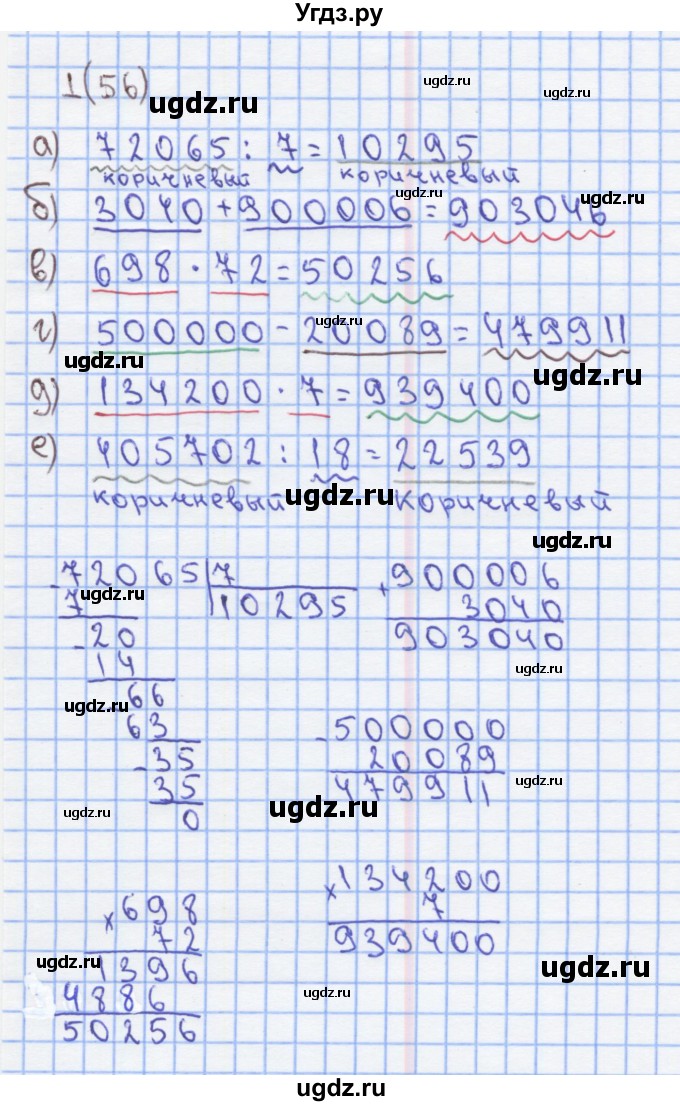 Угдз.ру
1(56)
ugdz.ru
ugdz.ru
ugdz.ru
а) 72065 : 7 = 10295
коричневый коричневый
ugdz.ru
ugdz.ru
б) 3040 + 900006 = 903046
в) 698 · 72 = 50256
ugdz.ru
г) 500000 - 20089 = 479911
ugdz.ru
ugdz.ru
д) 134200 · 7 = 939400
е) 405702 : 18 = 22539
коричневый коричневый
ugdz.ru
ugdz.ru
- 72065 7
7 10295
ugdz.ru
- 20
14
66
63
- 35
35
0
ugdz.ru
ugdz.ru
+ 900006
3040
903040
ugdz.ru
- 500000
20089
479911
ugdz.ru
ugdz.ru
× 698
72
1396
4886
50256
ugdz.ru
× 134200
7
939400
ugdz.ru
ugdz.ru
ugdz.ru